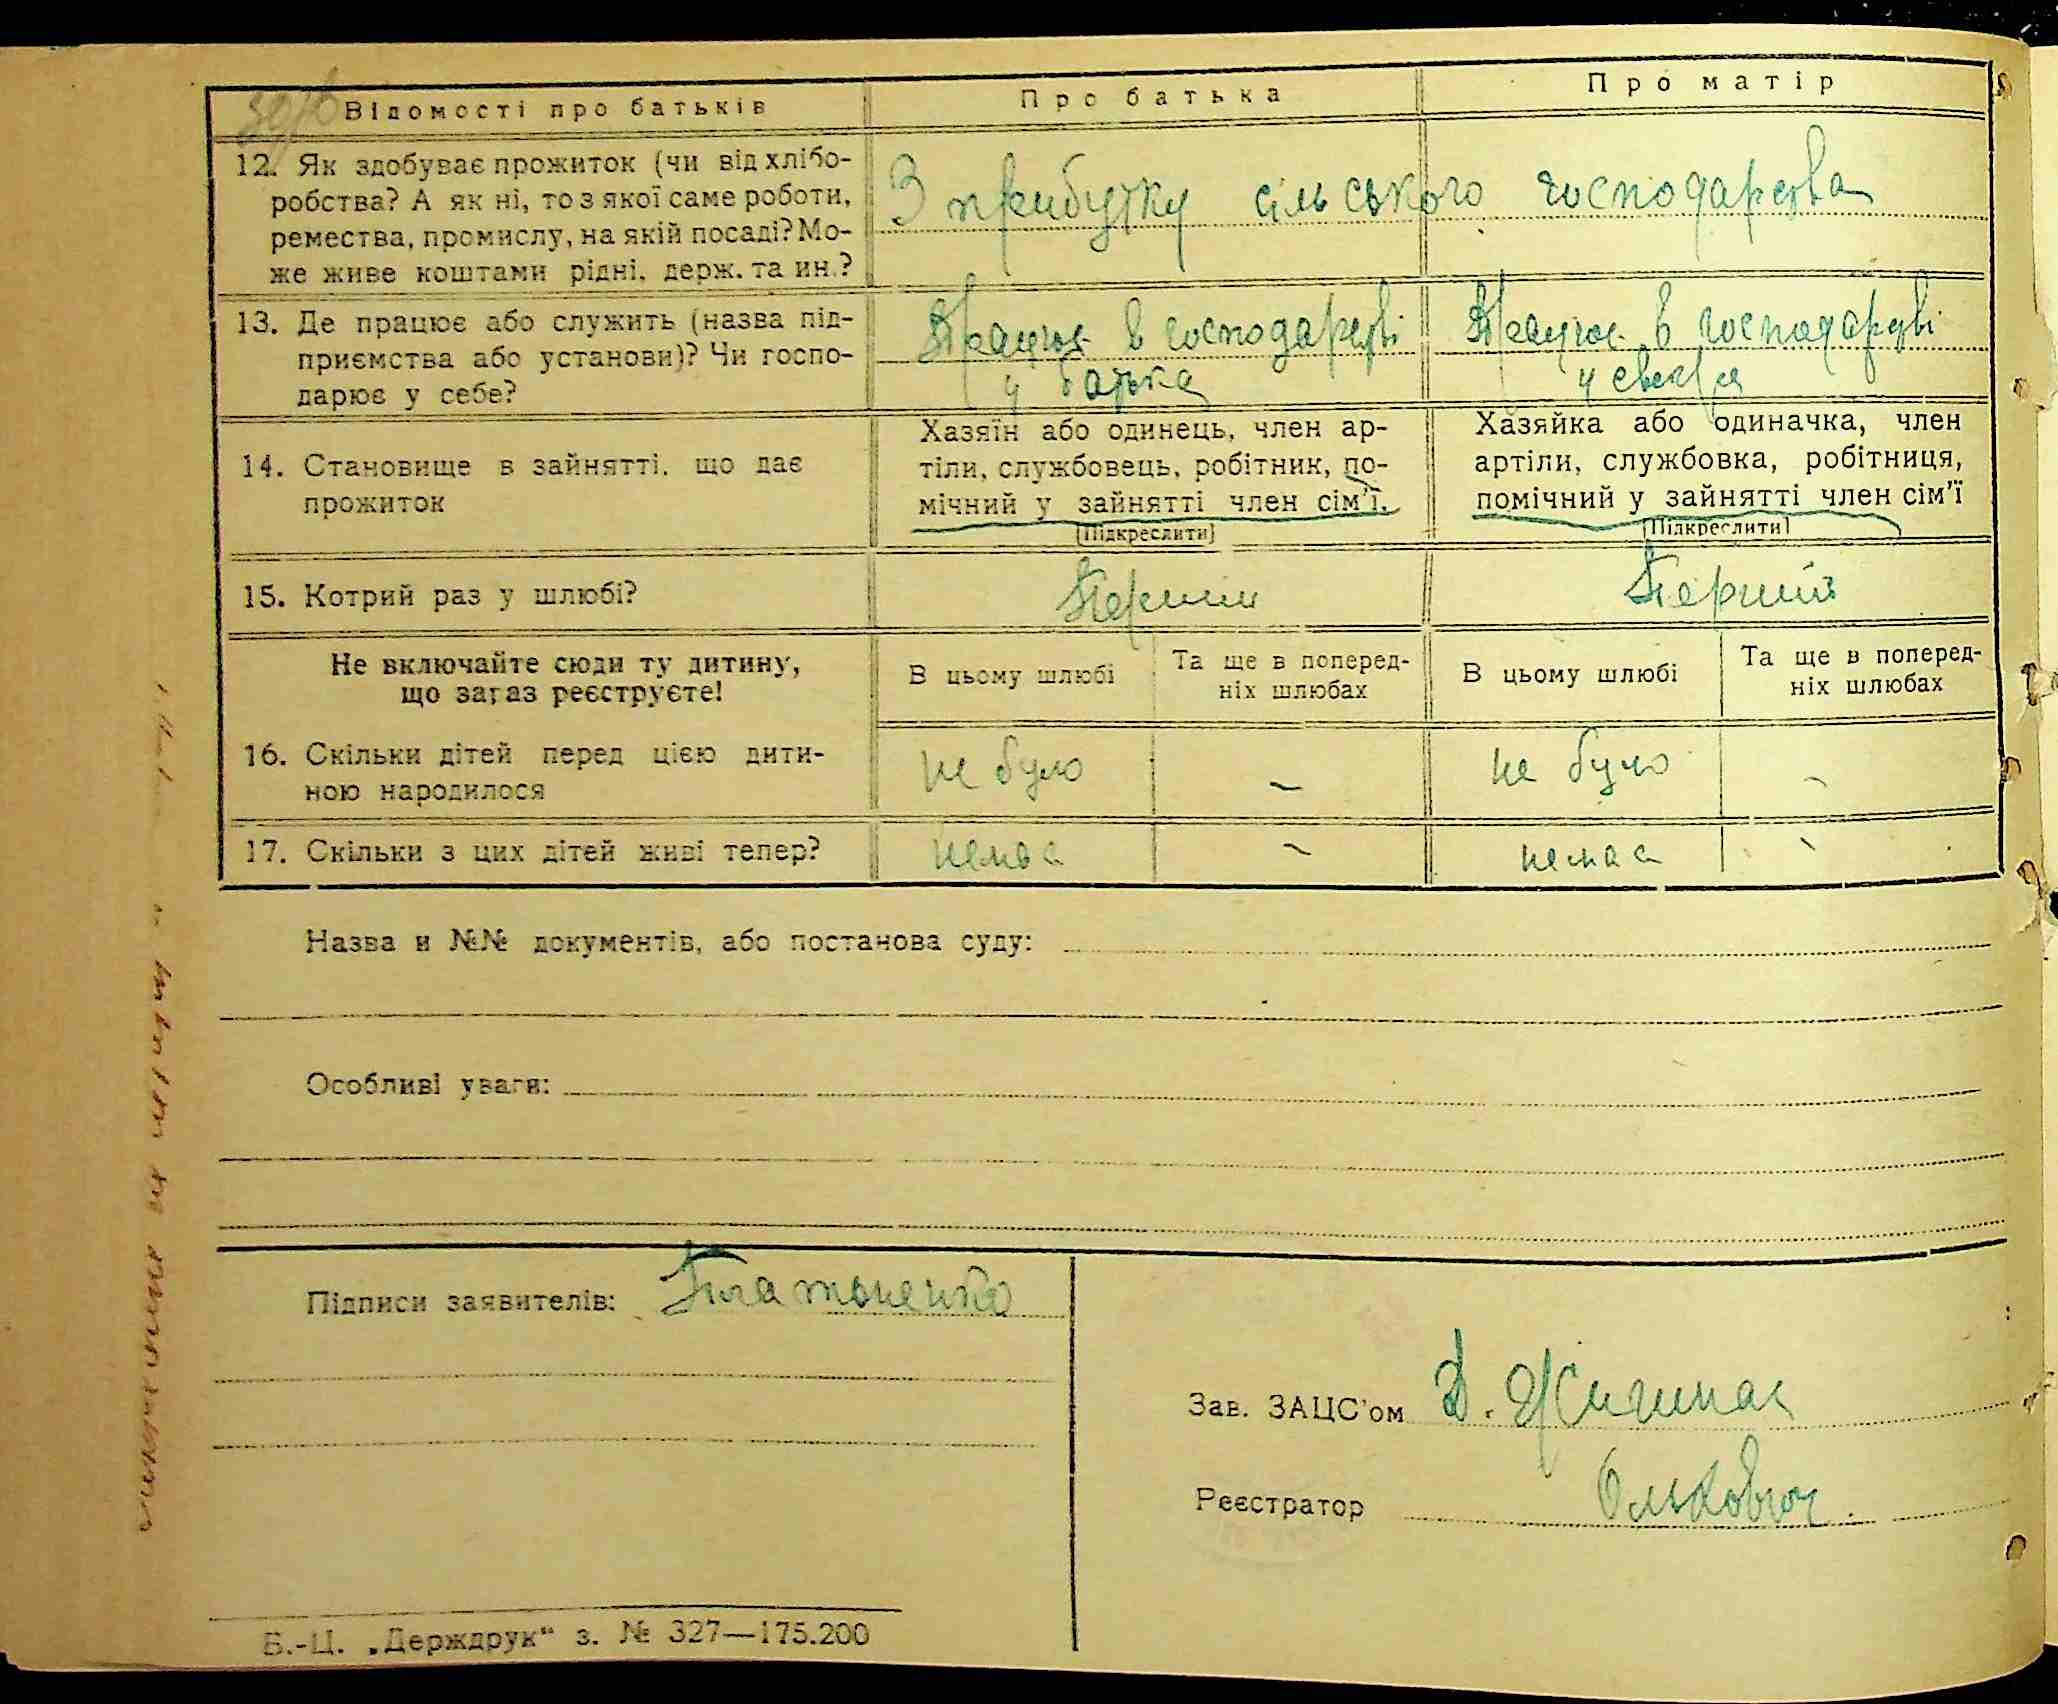 Відомості про батьків
Про батька
Про матір
12. Як здобуває прожиток (чи від хлібо-
робства? А як ні, то з якої саме роботи,
ремества, промислу, на якій посаді? Мо-
же живе коштами рідні, держ. та ин.?
З прибутку сільського господарства
13. Де працює або служить (назва під-
приємства або установи)? Чи госпо-
дарює у себе?
Працює в господарстві
у батька
Працює в господарстві
у свекра
14. Становище в зайнятті, що дає
прожиток
Хазяїн або одинець, член ар-
тіли, службовець, робітник, по-
мічний у зайнятті член сім'ї.
(Підкреслити)
Хазяйка або одиначка, член
артіли, службовка, робітниця,
помічний у зайнятті член сім'ї
(Підкреслити)
15. Котрий раз у шлюбі?
Перший
Перший
Не включайте сюди ту дитину,
що зараз реєструєте!
В цьому шлюбі
Та ще в поперед-
ніх шлюбах
В цьому шлюбі
Та ще в поперед-
ніх шлюбах
16. Скільки дітей перед цією дити-
ною народилося
не було
–
не було
–
17. Скільки з цих дітей живі тепер?
немає
–
немає
–
Назва й №№ документів, або постанова суду:
Особливі уваги:
Підписи заявителів: Платоненко
Зав. ЗАЦС'ом Д.
Реєстратор
Б.-Ц. „Держдрук" з. № 327—175.200